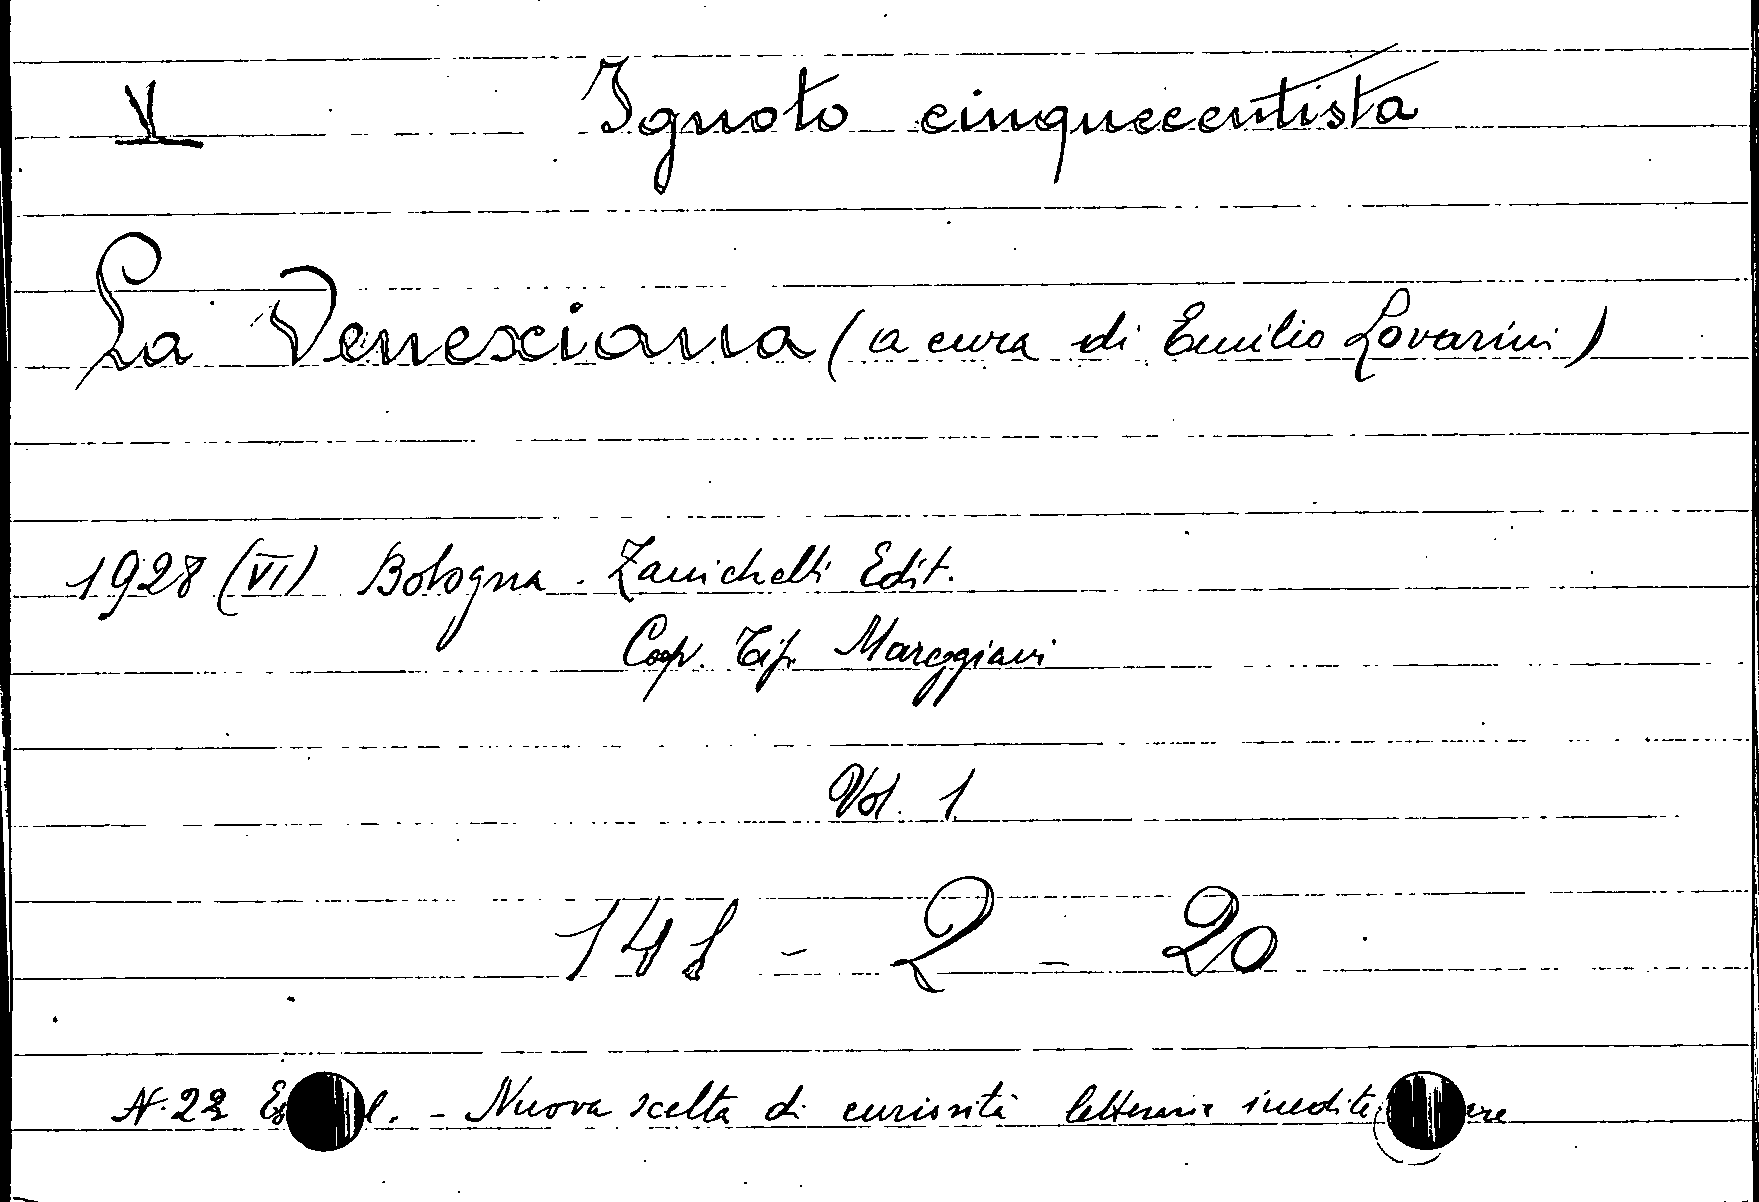 V Ignoto cinquecentista
La Venexiana (a cura di Emilio Lovarini)
1928 (VI) Bologna. Zanichelli Edit.
Coop. Tip. Mareggiani
Vol. 1
141 - 2 - 20
N. 22 - Nuova scelta di curiosità letterarie inedite